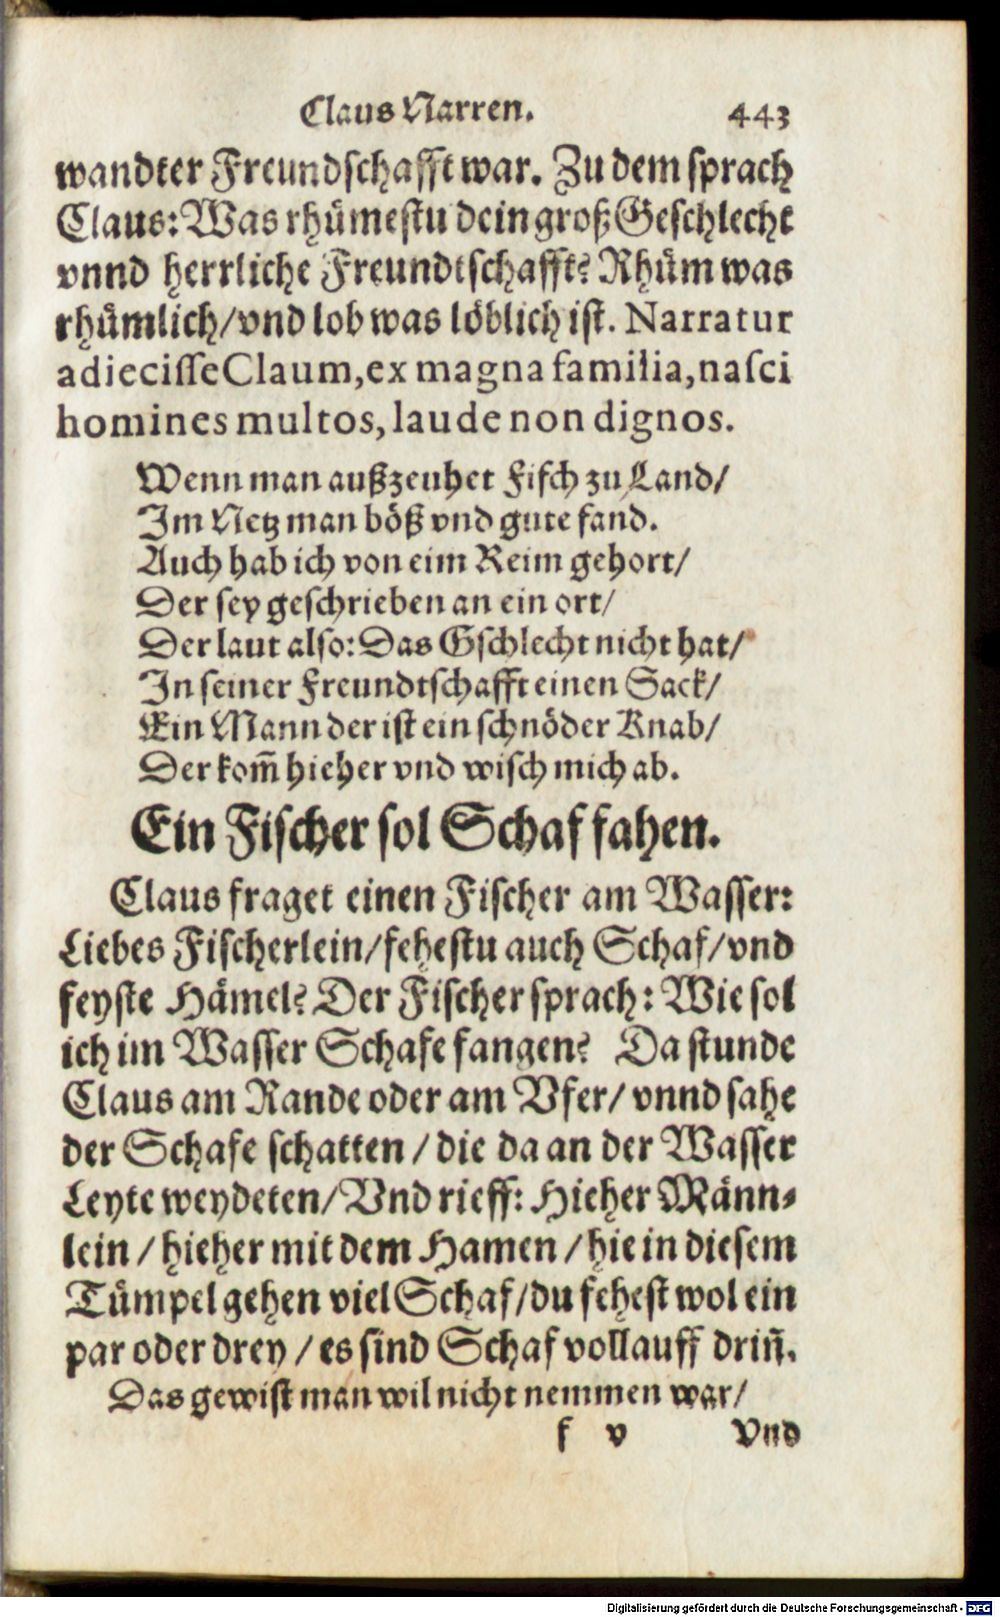 Claus Narren. 443
wandter Freundschafft war. Zu dem sprach
Claus: Was rhuͤmestu dein groß Geschlecht
vnnd herrliche Freundtschafft? Rhuͤm was
rhuͤmlich/ vnd lob was loͤblich ist. Narratur
adiecisse Claum, ex magna familia, nasci
homines multos, laude non dignos.
Wenn man außzeuhet Fisch zu Land/
Im Netz man boͤß vnd gute fand.
Auch hab ich von eim Reim gehort/
Der sey geschrieben an ein ort/
Der laut also: Das Gschlecht nicht hat/
In seiner Freundtschafft einen Sack/
Ein Mann der ist ein schnoͤder Knab/
Der kom̃ hieher vnd wisch mich ab.
Ein Fischer sol Schaf fahen.
Claus fraget einen Fischer am Wasser:
Liebes Fischerlein/ fehestu auch Schaf/ vnd
feyste Haͤmel? Der Fischer sprach: Wie sol
ich im Wasser Schafe fangen? Da stunde
Claus am Rande oder am Vfer/ vnnd sahe
der Schafe schatten / die da an der Wasser
Leyte weydeten/ Vnd rieff: Hieher Maͤnn⸗
lein / hieher mit dem Hamen / hie in diesem
Tuͤmpel gehen viel Schaf/ du fehest wol ein
par oder drey / es sind Schaf vollauff driñ.
Das gewist man wil nicht nemmen war/
f v Vnd
Digitalisierung gefördert durch die Deutsche Forschungsgemeinschaft - DFG